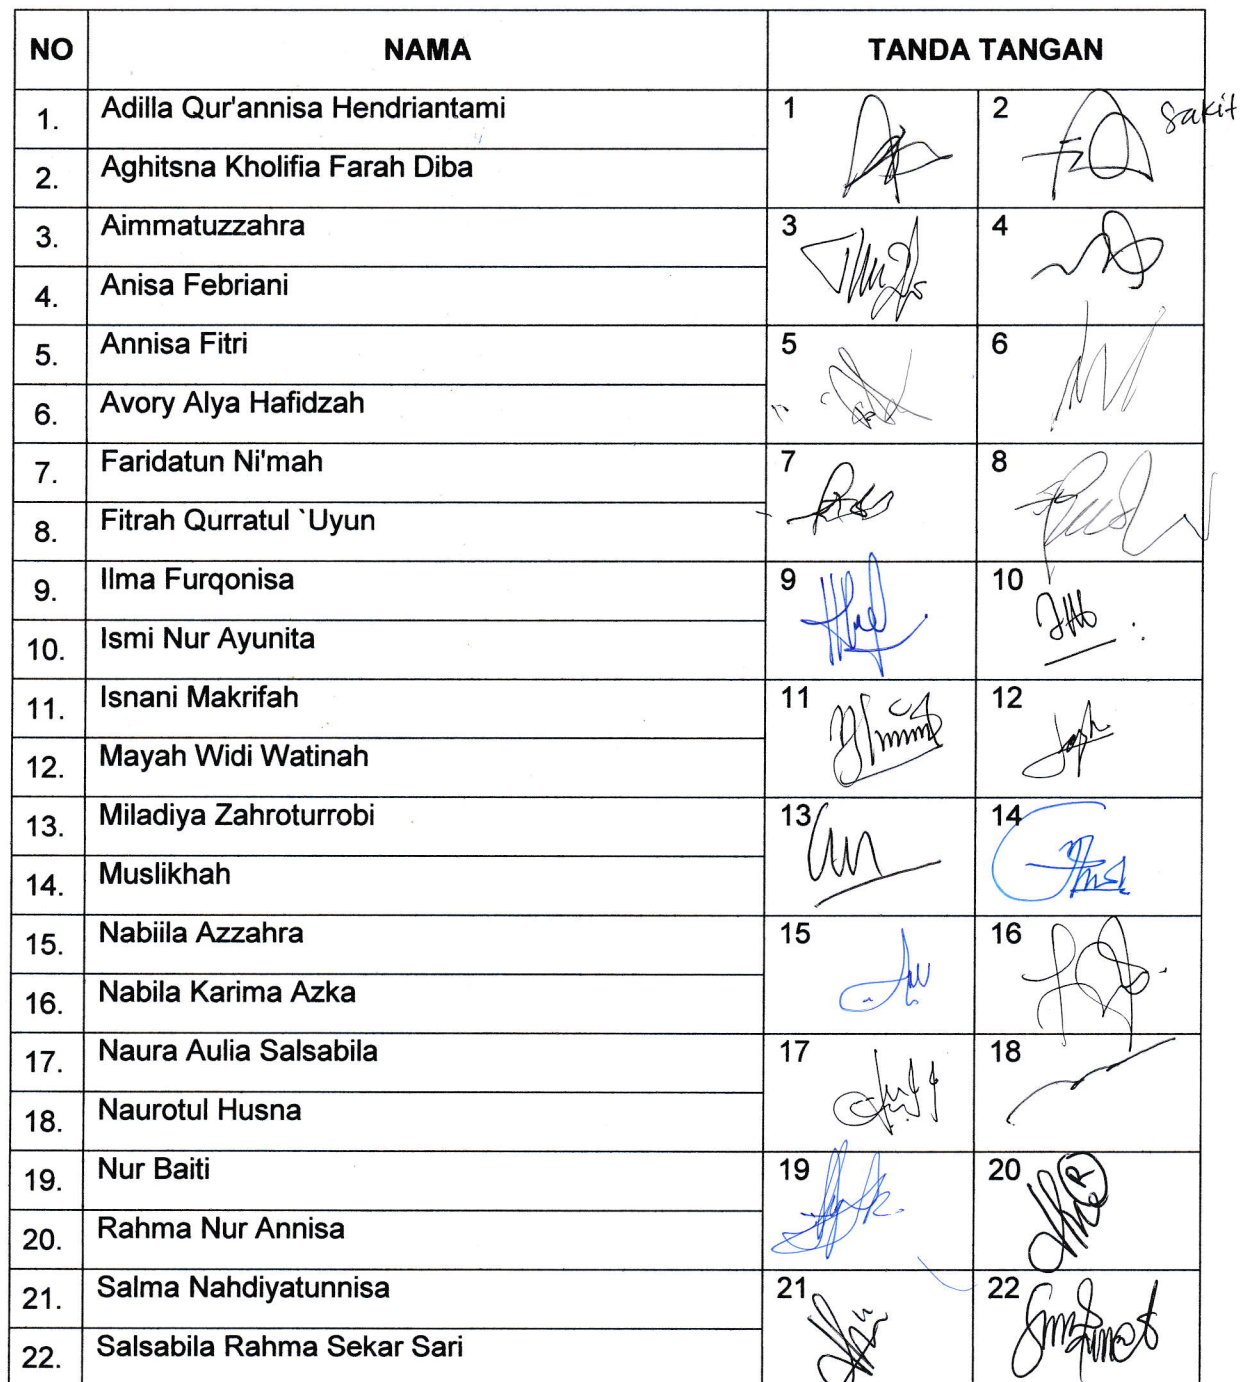 NO NAMA TANDA TANGAN
1. Adilla Qur'annisa Hendriantami 1 2 sakit
2. Aghitsna Kholifia Farah Diba
3. Aimmatuzzahra 3 4
4. Anisa Febriani
5. Annisa Fitri 5 6
6. Avory Alya Hafidzah
7. Faridatun Ni'mah 7 8
8. Fitrah Qurratul `Uyun
9. Ilma Furqonisa 9 10
10. Ismi Nur Ayunita
11. Isnani Makrifah 11 12
12. Mayah Widi Watinah
13. Miladiya Zahroturrobi 13 14
14. Muslikhah
15. Nabiila Azzahra 15 16
16. Nabila Karima Azka
17. Naura Aulia Salsabila 17 18
18. Naurotul Husna
19. Nur Baiti 19 20
20. Rahma Nur Annisa
21. Salma Nahdiyatunnisa 21 22
22. Salsabila Rahma Sekar Sari